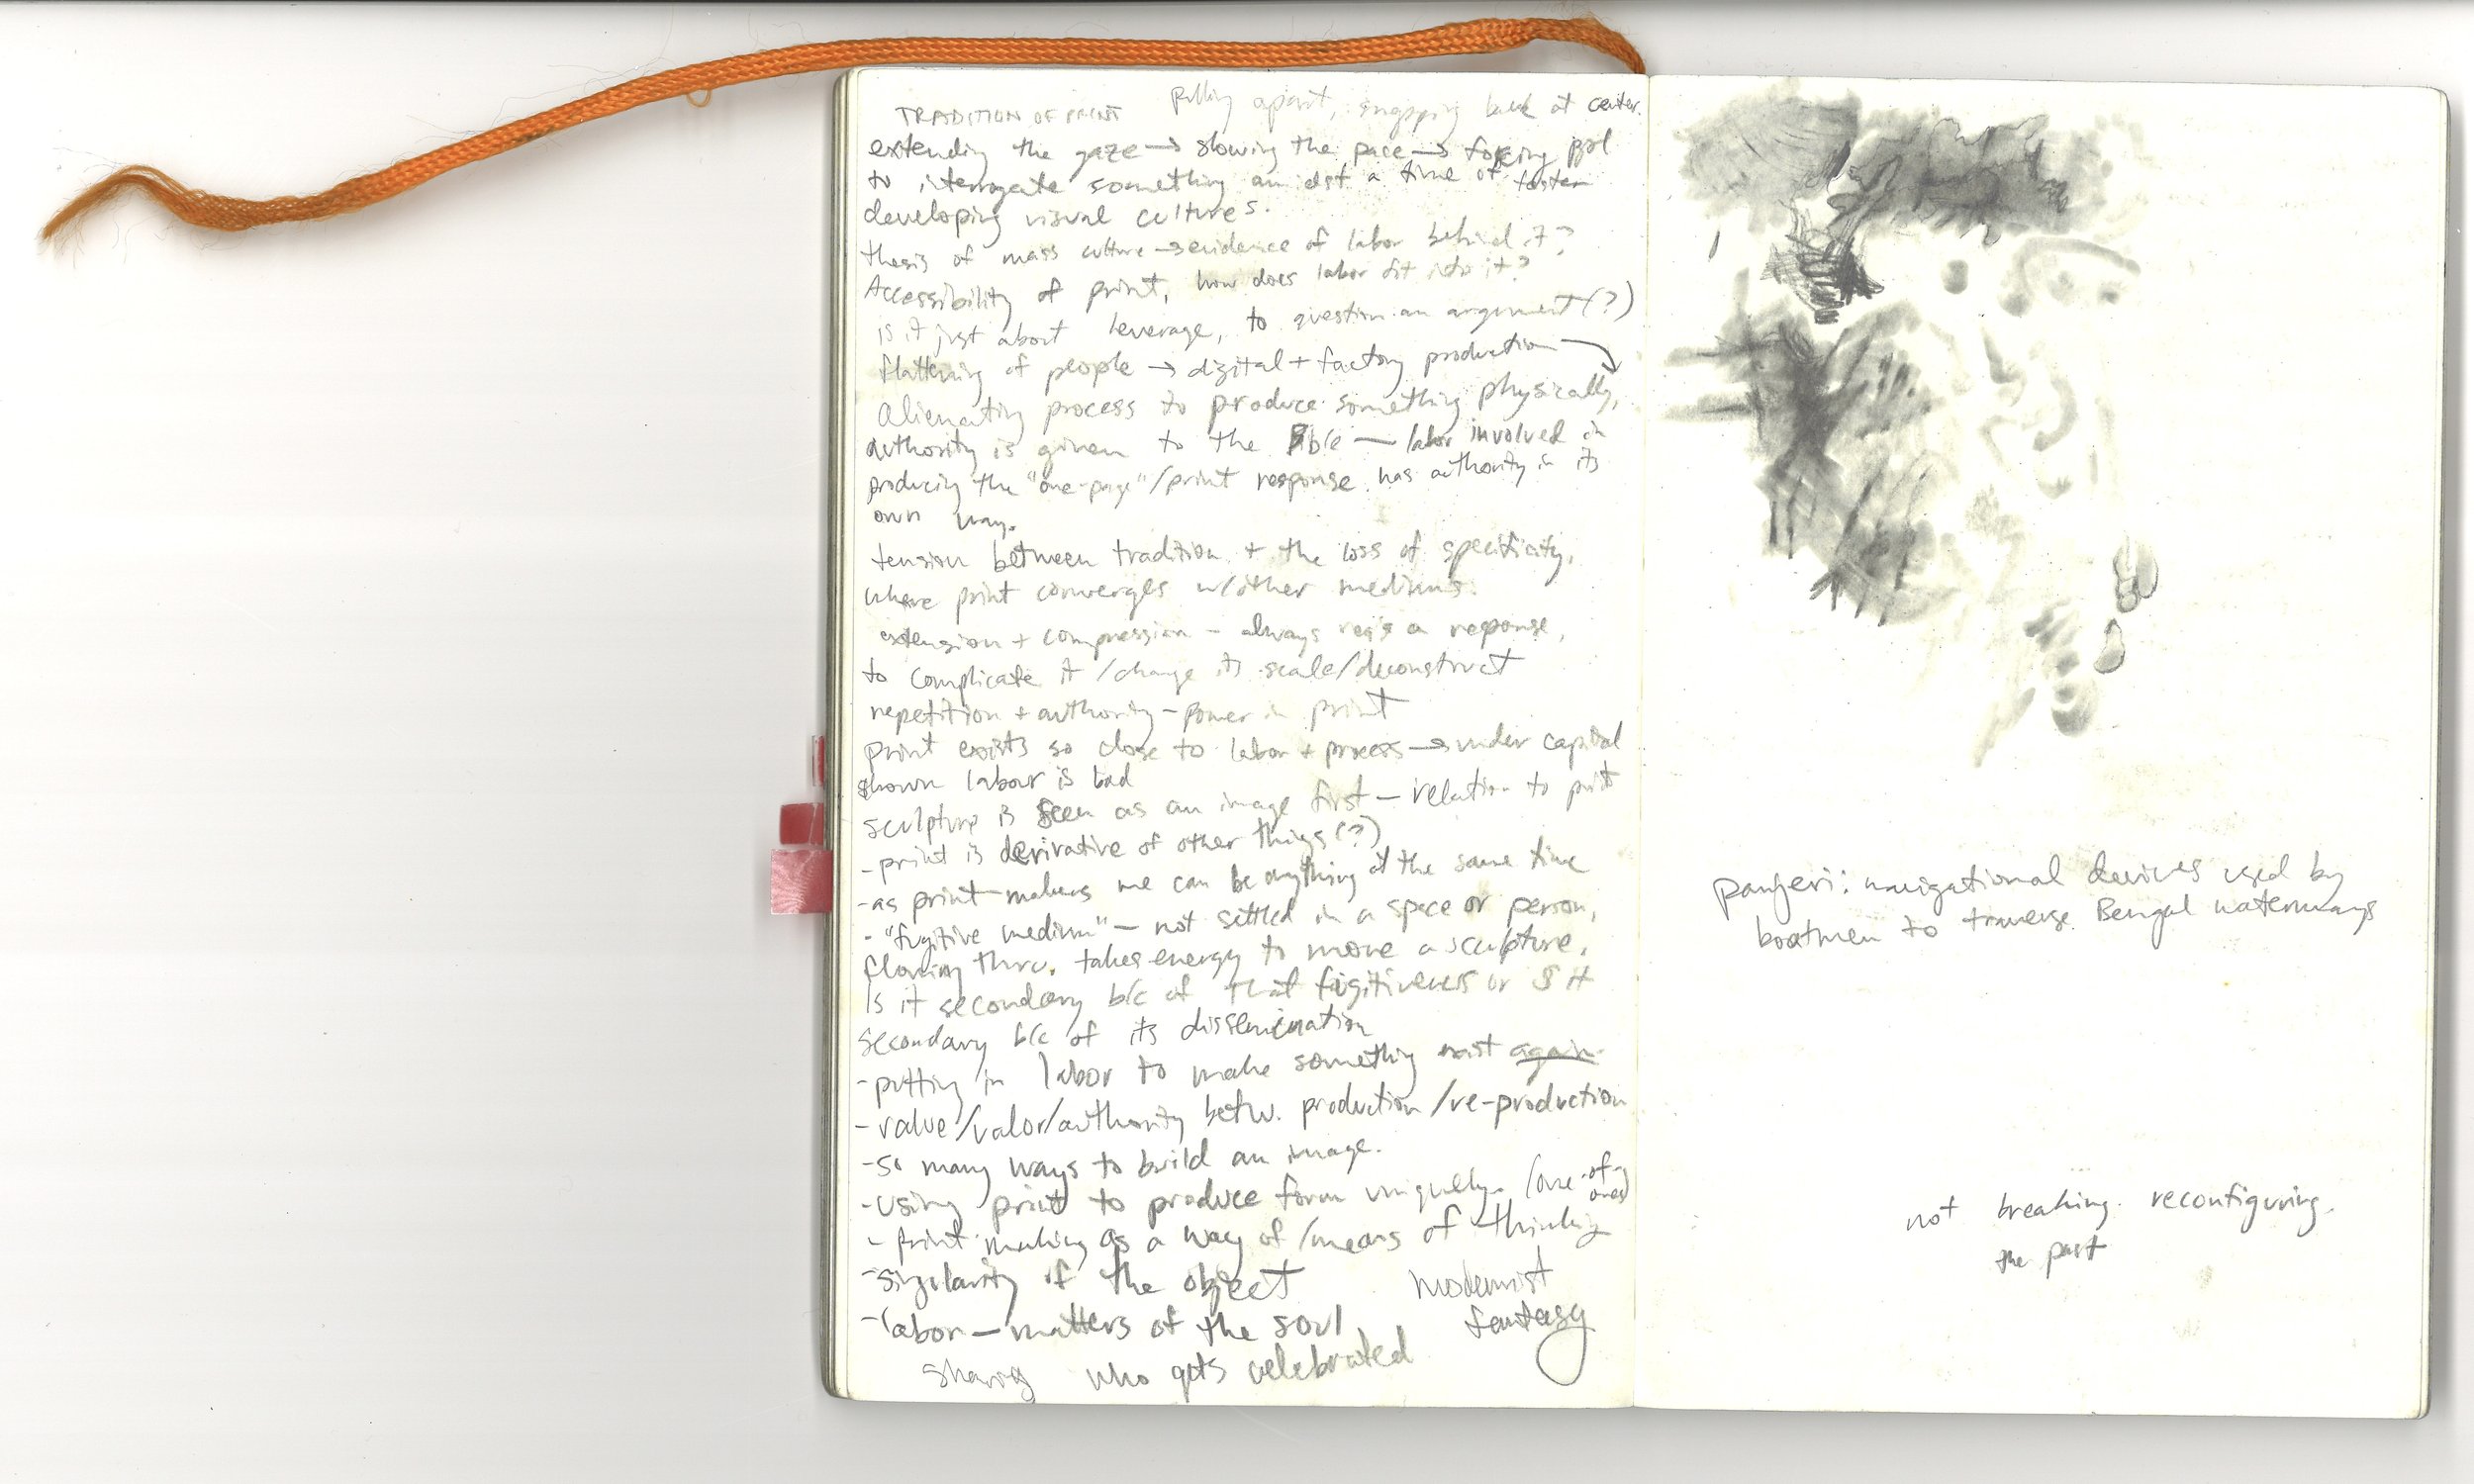 TRADITION OF PRINT
Pulling apart, snapping back at center.
extending the gaze → slowing the pace → forcing ppl
to interrogate something amidst a time of faster
developing visual cultures.
thesis of mass culture → evidence of labor behind it?
Accessibility of print, how does labor fit into it?
is it just about leverage, to question an argument (?)
flattening of people → digital + factory production
alienating process to produce something physically,
authority is given to the Bible — labor involved in
producing the "one-page"/print response has authority in its
own way.
tension between tradition + the loss of specificity,
where print converges w/other mediums.
extension + compression - always req's a response,
to complicate it /change its scale/deconstruct
repetition + authority - Power in print
print exists so close to labor + process → under capital
shown labour is bad
sculpture is seen as an image first — relation to print
- print is derivative of other things (?)
- as print-makers we can be anything at the same time
- "fugitive medium" — not settled in a space or person,
flowing thru. takes energy to move a sculpture.
Is it secondary b/c of that fugitiveness or is it
secondary b/c of its dissemination
- putting in labor to make something exist again
- value/valor/authority betw. production/re-production
- so many ways to build an image.
- using print to produce form uniquely. (one-of-ones)
- print making as a way of /means of thinking
- singularity of the object
modernist
fantasy
- labor — matters of the soul
sharing who gets celebrated
panjeri: navigational devices used by
boatmen to traverse Bengal waterways
not breaking. reconfiguring.
the past